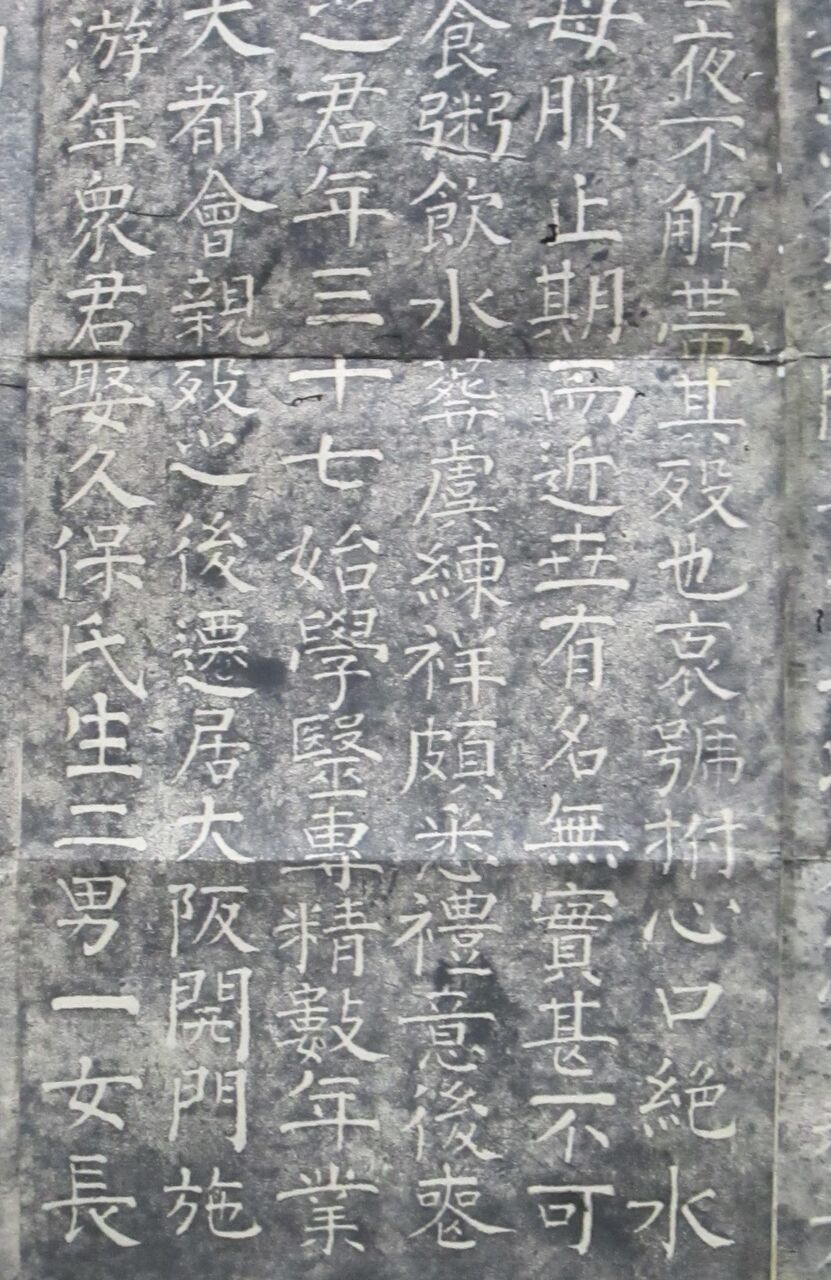 夜不解帶其歿也哀號拊心口絕水
母服止期而近世有名無實甚不可
食粥飲水葬虞練祥頗悉禮意後喪
之君年三十七始學醫專精數年業
大都會親歿之後遷居大阪開門施
游年眾君娶久保氏生三男一女長